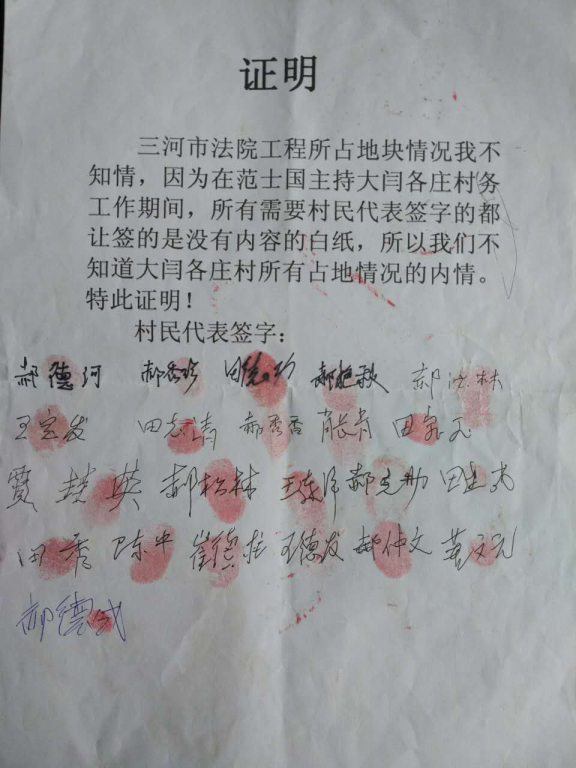 证明
三河市法院工程所占地块情况我不
知情，因为在范士国主持大闫各庄村务
工作期间，所有需要村民代表签字的都
让签的是没有内容的白纸，所以我们不
知道大闫各庄村所有占地情况的内情。
特此证明！
村民代表签字：
郝德河 郝秀珍 郝艳秋
王宝发 田志清 郝秀香
贾慧英 郝松林 郝克勋
闫秀 陈中 崔德柱 王德发 郝仲文
郝德成